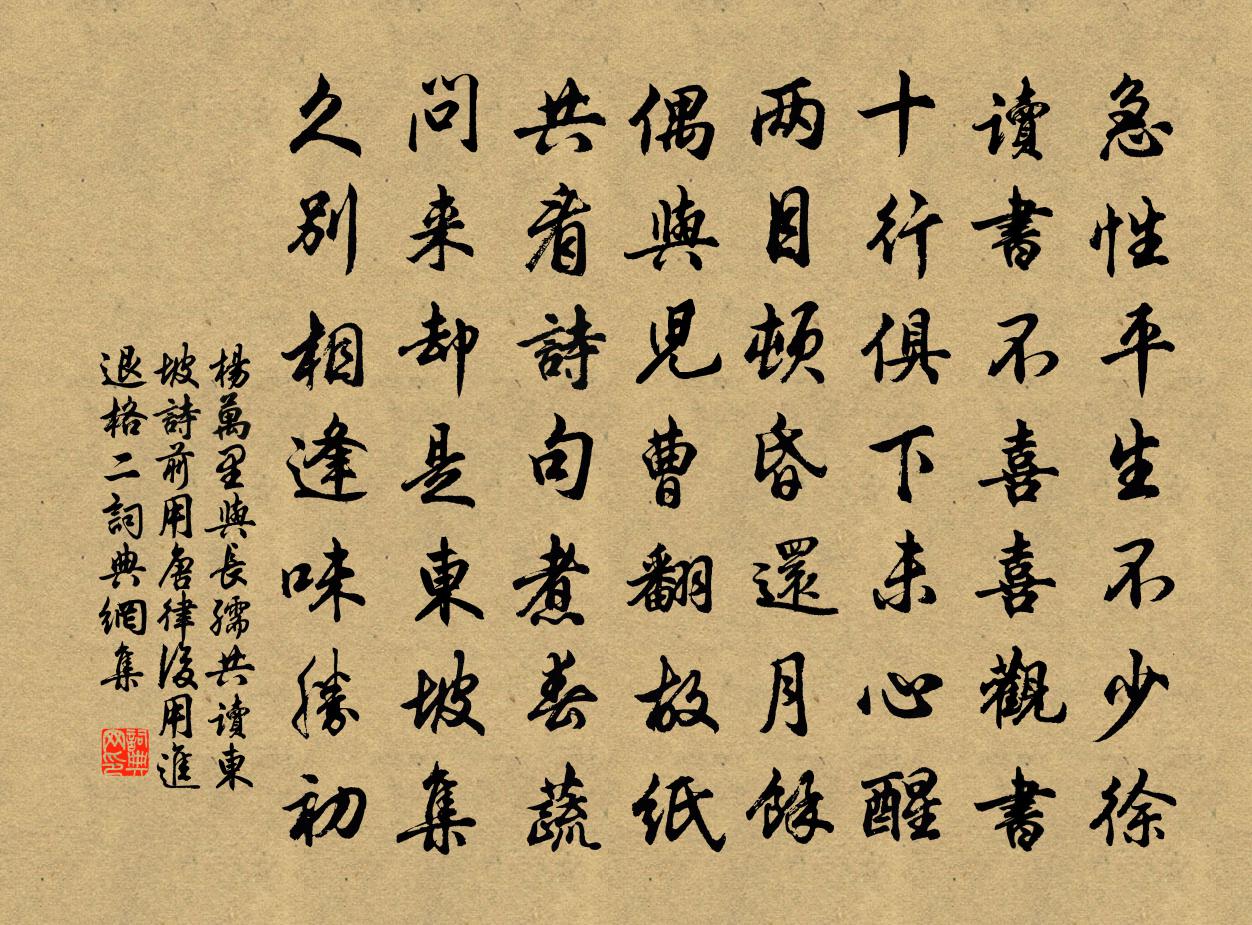 急性平生不少徐
讀書不喜喜觀書
十行俱下未心醒
两目頓昏還月餘
偶與兒曹翻故紙
共看詩句煮春蔬
問来却是東坡集
久別相逢味勝初
楊萬里與長孺共讀東
坡詩前用唐律後用進
退格二詞典網集
詞典网印